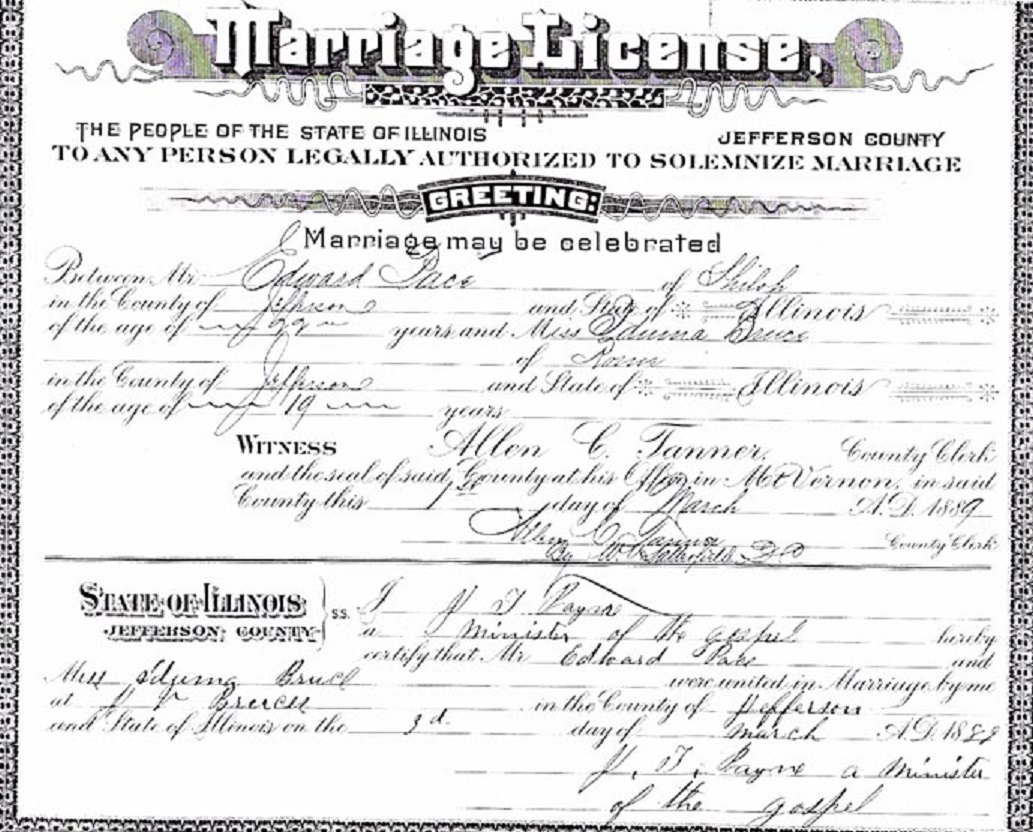 Marriage License.
THE PEOPLE OF THE STATE OF ILLINOIS JEFFERSON COUNTY
TO ANY PERSON LEGALLY AUTHORIZED TO SOLEMNIZE MARRIAGE
GREETING:
Marriage may be celebrated
Between Mr Edward Pace of Shiloh
in the County of Jefferson and State of Illinois
of the age of 22 years and Miss Iduma Bruce
of Rome
in the County of Jefferson and State of Illinois
of the age of 19 years
WITNESS Allen C. Tanner, County Clerk
and the seal of said County at his Office in Mt Vernon, in said
County this 1st day of March A.D. 1889
Allen C. Tanner County Clerk
By D.C.
STATE OF ILLINOIS
JEFFERSON COUNTY ss. I J T Payne
a Minister of the gospel hereby
certify that Mr Edward Pace and
Miss Iduma Bruce were united in Marriage by me
at J V in the County of Jefferson
and State of Illinois on the 3d day of March A.D. 1889
J. T. Payne a Minister
of the gospel